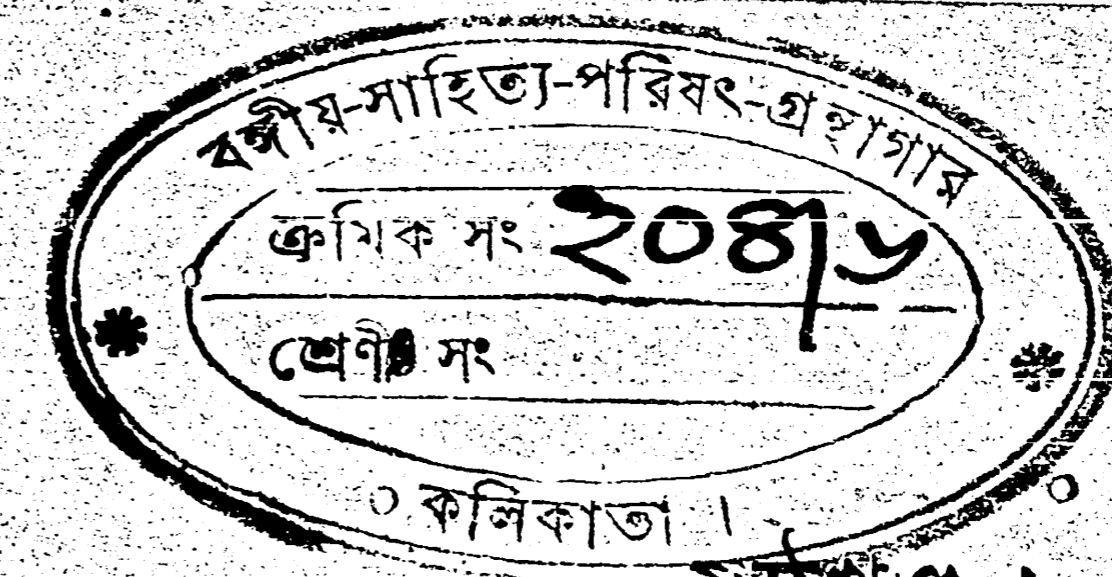 বঙ্গীয়-সাহিত্য-পরিষৎ-গ্রন্থাগার
ক্রমিক সং ২০৪৭৬
শ্রেণী সং
কলিকাতা ।